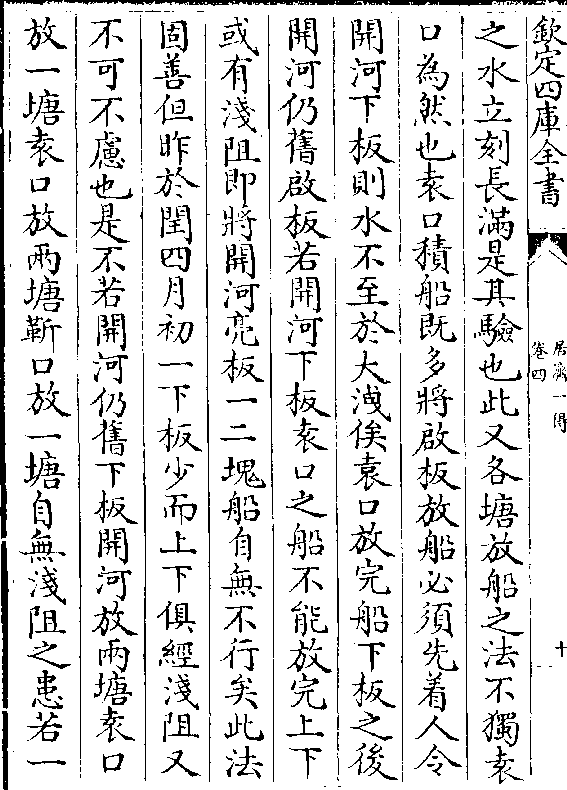 欽定四庫全書
居濟一得
卷四
十
之水立刻長滿是其驗也此又各塘放船之法不獨袁
口為然也袁口積船既多將啟板放船必須先着人令
開河下板則水不至於大洩俟袁口放完船下板之後
開河仍舊啟板若開河下板袁口之船不能放完上下
或有淺阻即將開河亮板一二塊船自無不行矣此法
固善但昨於閏四月初一下板少而上下俱經淺阻又
不可不慮也是不若開河仍舊下板開河放兩塘袁口
放一塘袁口放兩塘靳口放一塘自無淺阻之患若一